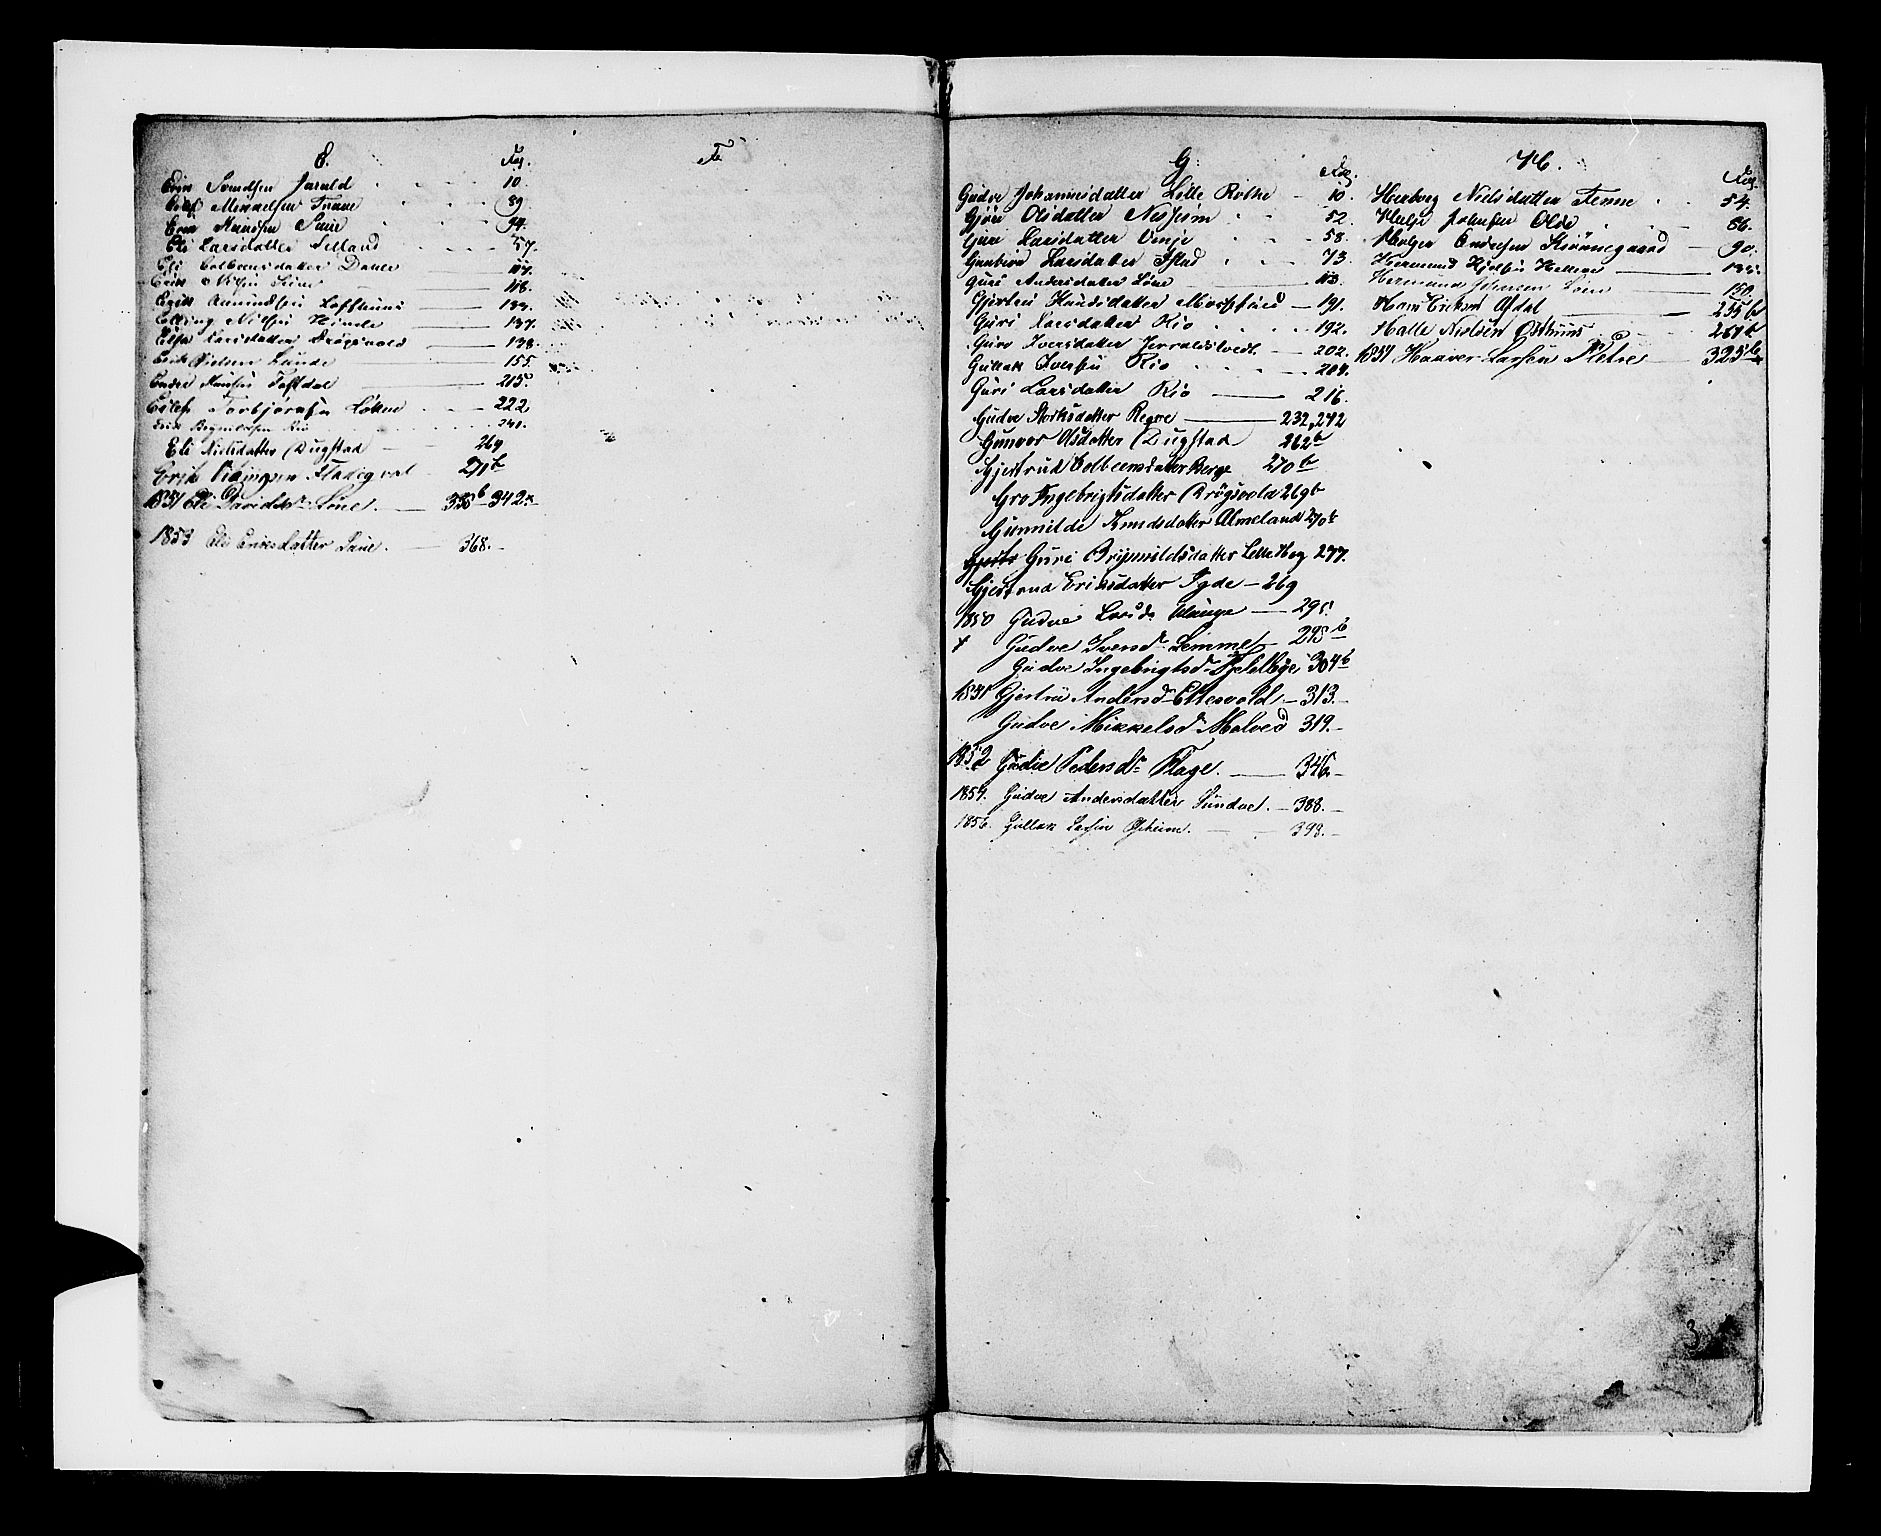 E.
Fol.
Erik Svendsen Jarald 10.
Eilef Mikkelsen Traae 89.
Erik Knudsen Saue 94.
Eli Larsdatter Selland 57.
Eli Colbeensdatter Dauve 107.
Erik Nilsen 118.
Erik Amundsen Lofthuus 134.
Elling Nielsen Hinde 137.
Larsdatter 138.
Erik Nielsen Lunde 155.
Endre Knudsen 215.
Eilef Torbjørnsen Løkne 222
Erik Brynildsen Rio 241.
Eli Nielsdatter Dugstad 269
Erik Vikingsen Flatiqval 271b
1851 Eli Davidsdr Løne. 330b 342.
1853 Eli Eriksdatter Saue. 368.
F.
G.
Fol.
Gudve Johannesdatter Lille Rokne 10.
Gjøri Olsdatter Nesheim 52.
Guri Larsdatter Vinje 58.
Larsdatter Istad 73.
Guri Andersdatter Løne 113.
Gjertrud Knudsdatter 191.
Guri Larsdatter Rio 192.
Guro Iversdatter 202.
Gullak Iversen Rio 204.
Guri Larsdatter Rio 216.
Gudve Styrksdatter Regne 232, 242
Gunvor Olsdatter Dugstad 262b
Gjertrud Colbeensdatter Berge 270b
Gro Ingebrigtsdatter Grøgsvold 269b
Gunnilde Knudsdatter Almeland 270b
Guri Brynnildsdatter Lille Hæg 277.
Gjertrud Eriksdatter Igde 269
1850 Gudve Larsdr Mauge 295.
Gudve Iversdr Lemme 298b
Gudve Ingebrigtsdr Tjeldbge 304b
1851 Gjertru Andersdr Ettesvold 313.
Gudve Mikkelsdr Malved 319.
1852 Gudve Pedersdr Flage. 346.
1854. Gudve Andersdatter Sundve. 388.
1856. Gullak Larsen Opheim. 398.
H.
Fol.
Herborg Nielsdatter Temme 54.
Helje Johnsen Olde 86.
Holger Endresen Kinnegaard 90.
Hermund
Hermund Johnsen Løne 150.
Hans Ericksen Afdal 255b
Halle Nielsen Østhuus 261b
1851 Haaver Larsen Fletre 325b
3